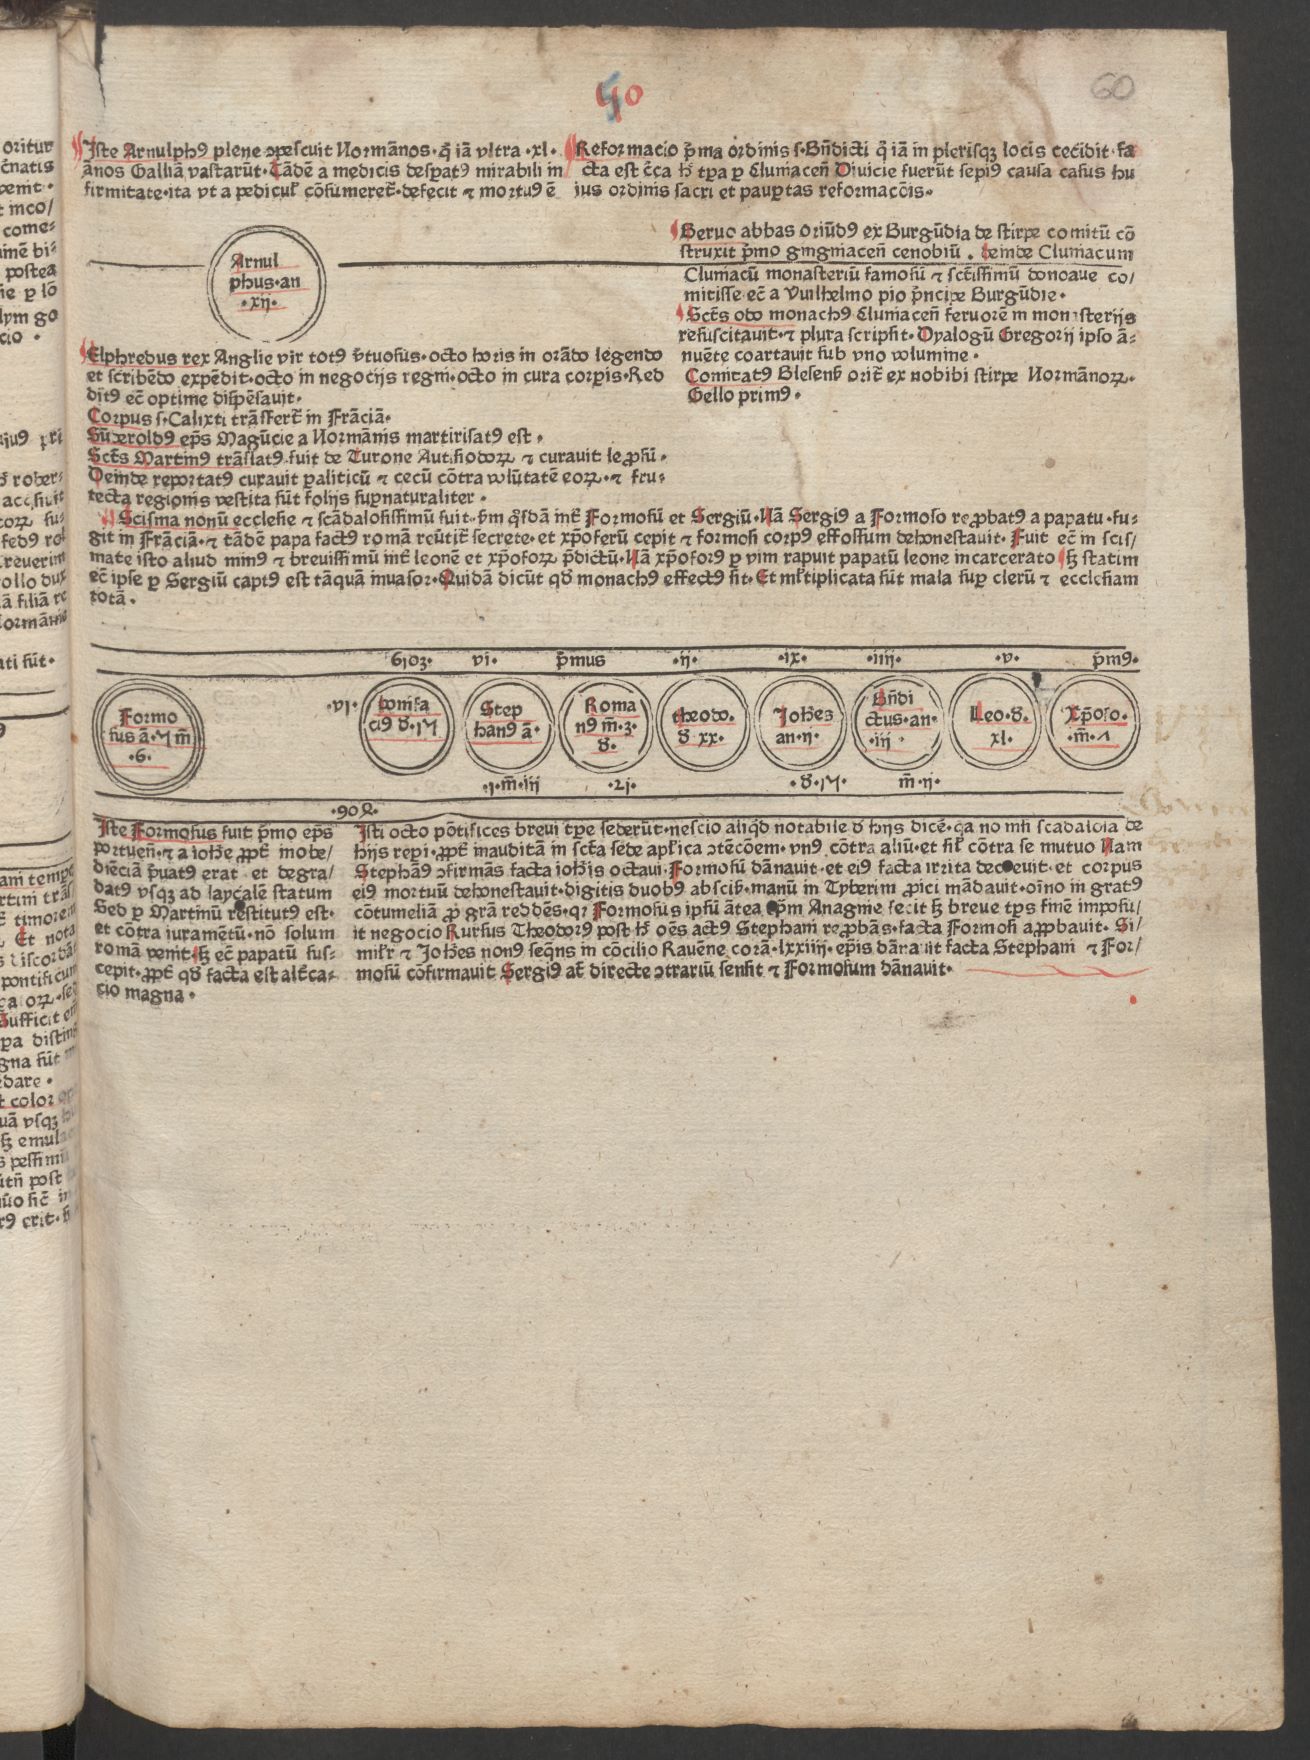 60
Iste Arnulphꝰ plene ꝯpescuit Normānos· q̄ iā vltra ·xl·
ānos Galliā vastarūt· Tādē a medicis despatꝰ mirabili in
firmitate· ita vt a pediculꝭ cōsumeret̄· defecit ⁊ mortuꝰ ē
Reformacio p̄ma ordinis s· Bn̄dicti q̄ iā in plerisqꝫ locis cecidit· fa
cta est c̄ca h̄ tꝑa ꝑ Cluniacen̄ Diuicie fuerūt sepiꝰ causa casus hu
ius ordinis sacri et pauꝑtas reformacōis·
Arnul
phus· an
·xij·
Beruo abbas oriūdꝰ ex Burgūdia de stirpe comitū cō
struxit p̄mo gingniacen̄ cenobiū . deinde Cluniacum
Cluniacū monasteriū famosū ⁊ sct̄issimū donoaue co/
mitisse ec̄ a Vuilhelmo pio p̄ncipe Burgūdie·
Sct̄s odo monachꝰ Cluniacen̄ feruorē in monasterijs
resuscitauit· ⁊ plura scripsit· Dyalogū Gregorij ipso ā-
nuēte coartauit sub vno volumine·
Comitatꝰ Blesensꝭ orit̄ ex nobibi stirpe Normānoꝝ·
Gello primꝰ·
Elphredus rex Anglie vir totꝰ v̄tuosus· octo horis in orādo legendo
et scribēdo expēdit· octo in negocijs regni· octo in cura corꝑis· Red
ditꝰ ec̄ optime dispēsauit·
Corpus s· Calixti trāsfert̄ in Frāciā·
Sūderoldꝰ ep̄s Magūcie a Normānis martirisatꝰ est·
Sct̄s Martinꝰ trāslatꝰ fuit de Turone Autisiodoꝝ ⁊ curauit leꝓsū·
Deinde reportatꝰ curauit paliticū ⁊ cecū cōtra volūtatē eoꝝ· ⁊ fru-
tecta regionis vestita sūt folijs suꝑnaturaliter·
Scisma nonū ecclesie ⁊ scādalosissimū fuit· p̄m q̄sdā int̄ Formosū et Sergiū· Nā Sergiꝰ a Formoso reꝓbatꝰ a papatu· fu-
git in Frāciā· ⁊ tādē papa factꝰ romā reūtit̄ secrete· et xp̄oferū cepit ⁊ formosi corpꝰ effossum dehonestauit· Fuit ec̄ in scis/
mate isto aliud minꝰ ⁊ breuissimū int̄ leonē et xp̄oforꝝ p̄dictū· Nā xp̄oforꝰ ꝑ vim rapuit papatū leone incarcerato sꝫ statim
ec̄ ipse ꝑ Sergiū captꝰ est tāquā inuasor· Quidā dicūt qd̄ monachꝰ effectꝰ sit· Et ml̄tiplicata sūt mala suꝑ clerū ⁊ ecclesiam
totā·
610ꝫ· vi· p̄mus ·ij· ·ix· ·iiij· ·v· p̄mꝰ·
Formo
sus ā·⁊ m̄
·6·
·vi·
bonifa
ciꝰ d̄·17
Step
hanꝰ ā·
·i· m̄·iij
Roma
nꝰ m̄·3·
d̄·
·21·
theodo·
d̄ xx·
Joh̄es
an·ij·
·d̄·17·
Bn̄di
ctus· an·
·iij·
m̄·ij·
Leo·d̄·
xl·
Xp̄ofo·
·m̄·⁊
Iste Formosus fuit p̄mo ep̄s
portuen̄· ⁊ a ioh̄e ꝓpt̄ inobe/
diēciā p̄uatꝰ erat et degra/
datꝰ vsqꝫ ad laycalē statum
Sed ꝑ Martinū restitutꝰ est·
et cōtra iuramētū· nō solum
romā venit· sꝫ ec̄ papatū sus-
cepit· ꝓpt̄ qd̄ facta est alt̄ca-
cio magna·
Isti octo pōtifices breui tꝑe sederūt· nescio aliq̄d notabile d̄ hijs dicē· q̄a no in̄i scādalosa de
hijs reꝑi· ꝓpt̄ inauditā in sct̄a sede apl̄ica ꝯtēcōem· vnꝰ cōtra aliū· et sil̄ cōtra se mutuo Nam
Stephāꝰ ꝯfirmās facta ioh̄is octaui· Formosū dānauit· et eiꝰ facta irrita decreuit· et corpus
eiꝰ mortuū dehonestauit· digitis duobꝰ abscisꝭ· manū in Tyberim ꝓici mādauit· oīno in gratꝰ
cōtumeliā ꝓ grā reddēs· qꝛ Formosus ipsū āntea ep̄m Anagnie fecit sꝫ breue tꝑs sinē imposu/
it negocio Rursus Theodorꝰ post h̄ oēs actꝰ Stephani reꝓbās· facta Formosi aꝓpbauit· Si/
milꝛ ⁊ Joh̄es nonꝰ seq̄ns in cōcilio Rauēne corā· lxxiiij· ep̄is dānauit facta Stephani ⁊ For/
mosū cōfirmauit Sergiꝰ at̄ directe ꝯtrariū sensit ⁊ Formosum dānauit·